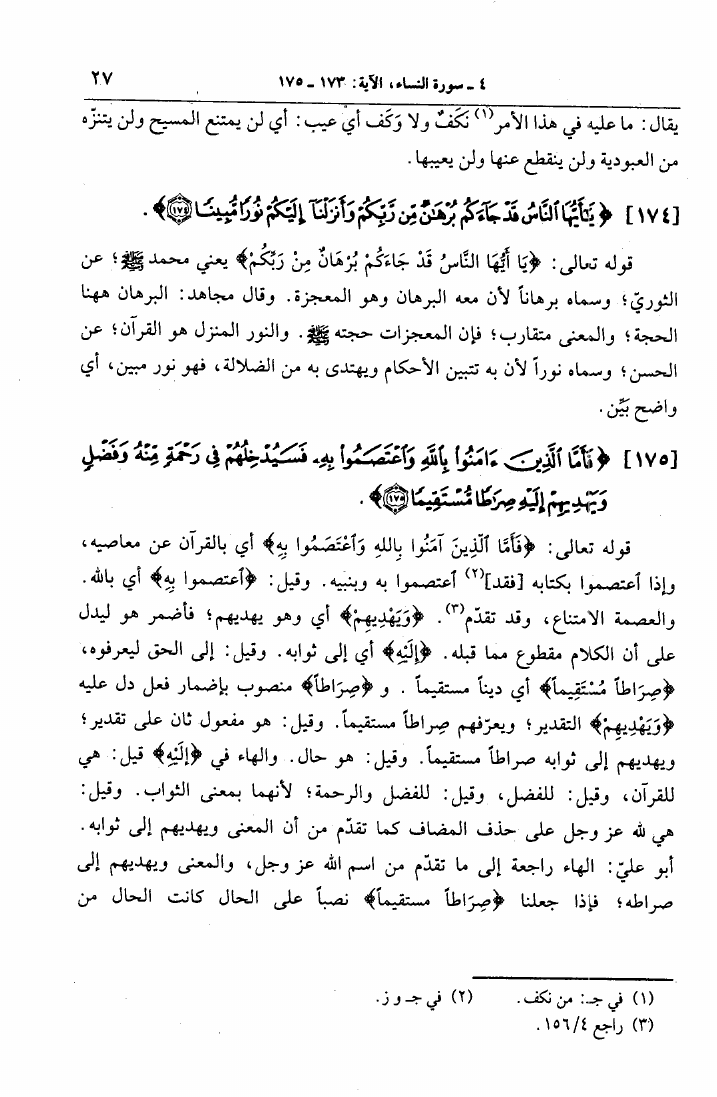 ٤ ـ سورة النساء، الآية: ١٧٣ ـ ١٧٥
٢٧
يقال: ما عليه في هذا الأمر(١) نَكَفٌ ولا وَكَف أي عيب: أي لن يمتنع المسيح ولن يتنزّه
من العبودية ولن ينقطع عنها ولن يعيبها.
[١٧٤] ﴿يَٰٓأَيُّهَا ٱلنَّاسُ قَدْ جَآءَكُم بُرْهَٰنٌ مِّن رَّبِّكُمْ وَأَنزَلْنَآ إِلَيْكُمْ نُورًا مُّبِينًا ۝١٧٤﴾.
قوله تعالى: ﴿يَا أَيُّهَا النَّاسُ قَدْ جَاءَكُمْ بُرْهَانٌ مِنْ رَبِّكُمْ﴾ يعني محمد ﷺ؛ عن
الثوريّ؛ وسماه برهاناً لأن معه البرهان وهو المعجزة. وقال مجاهد: البرهان ههنا
الحجة؛ والمعنى متقارب؛ فإن المعجزات حجته ﷺ. والنور المنزل هو القرآن؛ عن
الحسن؛ وسماه نوراً لأن به تتبين الأحكام ويهتدى به من الضلالة، فهو نور مبين، أي
واضح بَيِّن.
[١٧٥] ﴿فَأَمَّا ٱلَّذِينَ ءَامَنُوا۟ بِٱللَّهِ وَٱعْتَصَمُوا۟ بِهِۦ فَسَيُدْخِلُهُمْ فِى رَحْمَةٍ مِّنْهُ وَفَضْلٍ
وَيَهْدِيهِمْ إِلَيْهِ صِرَٰطًا مُّسْتَقِيمًا ۝١٧٥﴾.
قوله تعالى: ﴿فَأَمَّا ٱلَّذِينَ آمَنُوا بِاللهِ وَٱعْتَصَمُوا بِهِ﴾ أي بالقرآن عن معاصيه،
وإذا ٱعتصموا بكتابه [فقد](٢) ٱعتصموا به وبنبيه. وقيل: ﴿ٱعتصموا بِهِ﴾ أي بالله.
والعصمة الامتناع، وقد تقدّم(٣). ﴿وَيَهْدِيهِمْ﴾ أي وهو يهديهم؛ فأضمر هو ليدل
على أن الكلام مقطوع مما قبله. ﴿إِلَيْهِ﴾ أي إلى ثوابه. وقيل: إلى الحق ليعرفوه،
﴿صِرَاطاً مُسْتَقِيماً﴾ أي ديناً مستقيماً. و ﴿صِرَاطاً﴾ منصوب بإضمار فعل دل عليه
﴿وَيَهْدِيهِمْ﴾ التقدير؛ ويعرّفهم صِراطاً مستقيماً. وقيل: هو مفعول ثان على تقدير؛
ويهديهم إلى ثوابه صراطاً مستقيماً. وقيل: هو حال. والهاء في ﴿إِلَيْهِ﴾ قيل: هي
للقرآن، وقيل: للفضل، وقيل: للفضل والرحمة؛ لأنهما بمعنى الثواب. وقيل:
هي لله عز وجل على حذف المضاف كما تقدّم من أن المعنى ويهديهم إلى ثوابه.
أبو عليّ: الهاء راجعة إلى ما تقدّم من اسم الله عز وجل، والمعنى ويهديهم إلى
صراطه؛ فإذا جعلنا ﴿صِرَاطاً مستقيماً﴾ نصباً على الحال كانت الحال من
(١) في جـ: من نكف.
(٢) في جـ و ز.
(٣) راجع ١٥٦/٤.